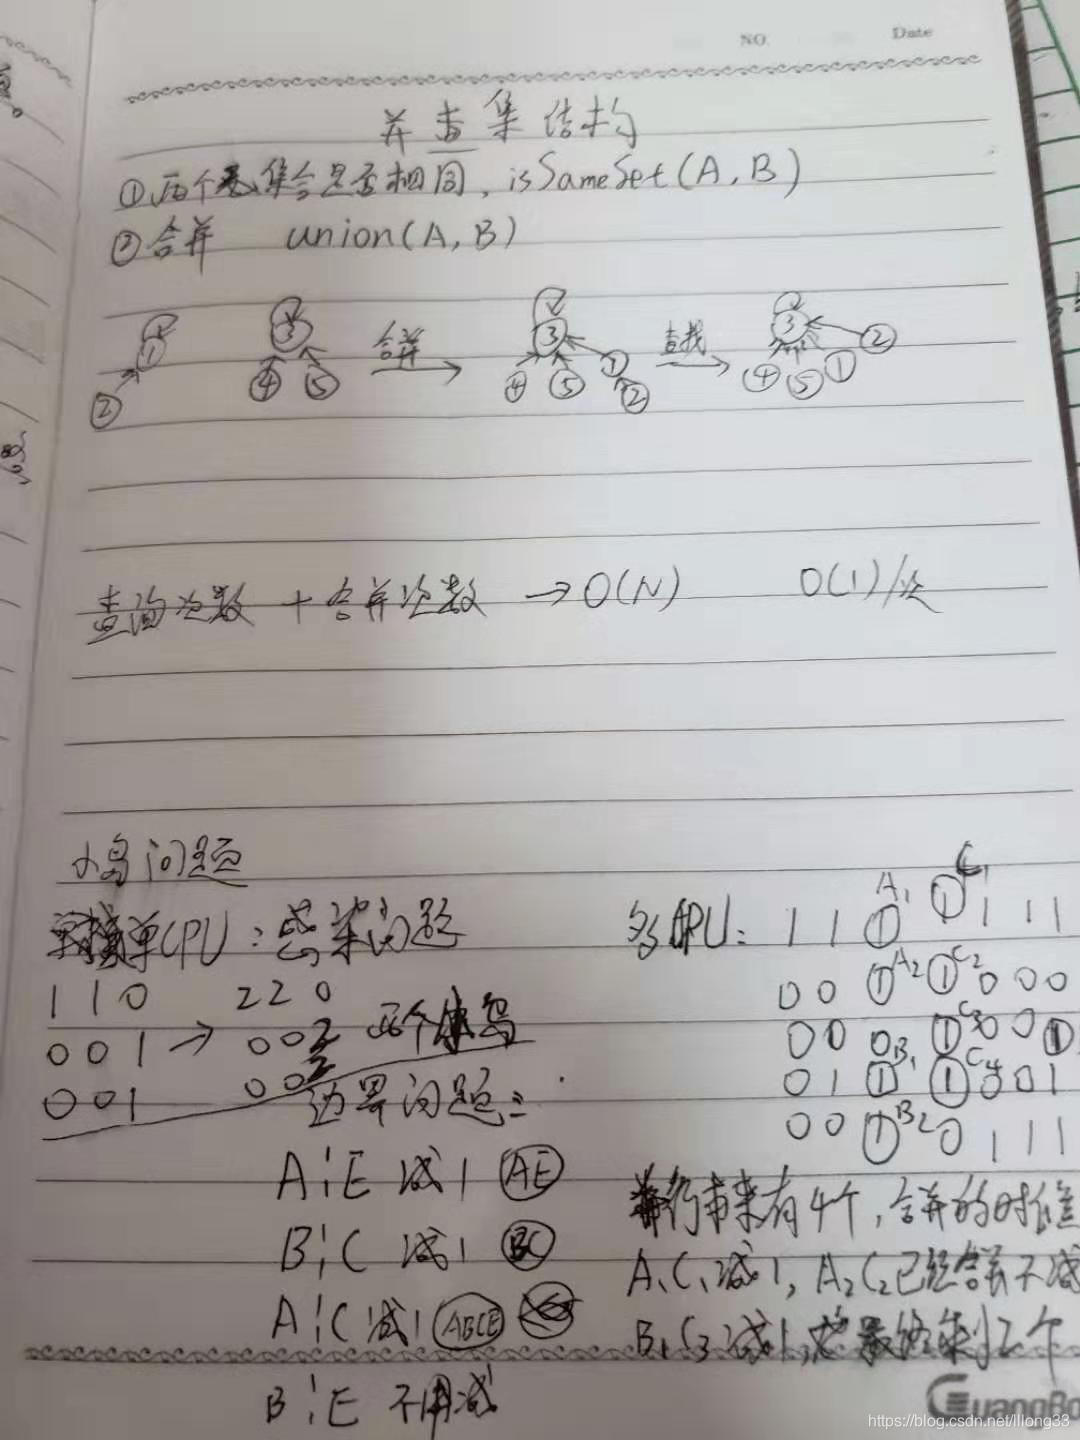 NO.
Date
并查集结构
①两个集合是否相同, isSameSet(A,B)
②合并 union(A,B)
1 3 合并 3 查找 3
2 4 5 4 5 1 2 4 5 1 2
查询次数 + 合并次数 → O(N) O(1)/次
小岛问题
单CPU: 感染问题
1 1 0 2 2 0
0 0 1 → 0 0 2 两个岛
0 0 1 0 0 2
边界问题:
A¦E 减1 AE
B¦C 减1 BC
A¦C 减1 ABCE
B¦E 不用减
多CPU: 1 1 ① A1 ① C1 1 1 1
0 0 ① A2 ① C2 0 0 0
0 0 0 ① C3 0 0 1
0 1 ① B1 ① C4 0 0 1
0 0 ① B2 0 1 1 1
本来有4个, 合并的时候
A1C1减1, A2C2已经合并不减
B1C3减1, 最终得到2个
GuangBo
https://blog.csdn.net/lllong33